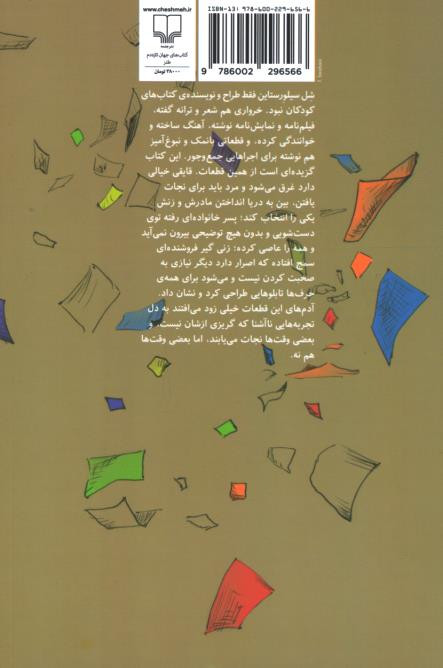 www.cheshmeh.ir
نشرچشمه
کتاب‌های جهان تازه‌دم
طنز
۲۸۰۰۰ تومان
ISBN-13: 978-600-229-656-6
9 786002 296566
شِل سیلورستاین فقط طراح و نویسنده‌ی کتاب‌های
کودکان نبود. خرواری هم شعر و ترانه گفته،
فیلم‌نامه و نمایش‌نامه نوشته، آهنگ ساخته و
خوانندگی کرده، و قطعاتی بانمک و نبوغ‌آمیز
هم نوشته برای اجراهایی جمع‌وجور. این کتاب
گزیده‌ای است از همین قطعات. قایقی خیالی
دارد غرق می‌شود و مرد باید برای نجات
یافتن، بین به دریا انداختن مادرش و زنش
یکی را انتخاب کند؛ پسر خانواده‌ای رفته توی
دست‌شویی و بدون هیچ توضیحی بیرون نمی‌آید
و همه را عاصی کرده؛ زنی گیر فروشنده‌ای
سمج افتاده که اصرار دارد دیگر نیازی به
صحبت کردن نیست و می‌شود برای همه‌ی
حرف‌ها تابلوهایی طراحی کرد و نشان داد.
آدم‌های این قطعات خیلی زود می‌افتند به دل
تجربه‌هایی ناآشنا که گریزی ازشان نیست، و
بعضی وقت‌ها نجات می‌یابند، اما بعضی وقت‌ها
هم نه.